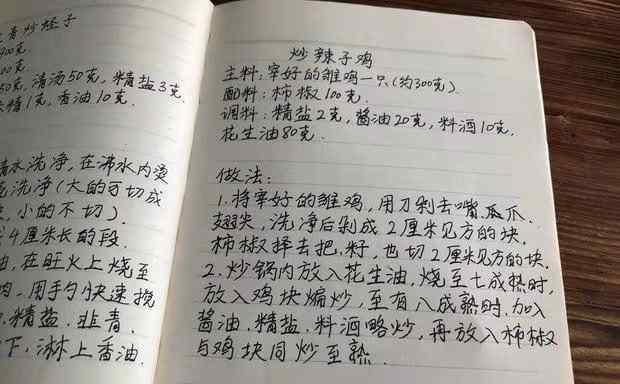 青炒蛏子
900克
00克
50克,清汤50克,精盐3克
精1克,香油10克
清水洗净,在沸水内烫
洗净(大的可切成
,小的不切).
4厘米长的段.
油,在旺火上烧至
肉,用手勺快速搅
.精盐.韭青.
下,淋上香油.
炒辣子鸡
主料:宰好的雏鸡一只(约300克).
配料:柿椒100克.
调料:精盐2克,酱油20克,料酒10克.
花生油80克.
做法:
1.将宰好的雏鸡,用刀剁去嘴.瓜爪.
翅尖,洗净后剁成2厘米见方的块.
柿椒择去把.籽,也切2厘米见方的块.
2.炒锅内放入花生油,烧至七成热时,
放入鸡块煸炒,至有八成熟时.加入
酱油.精盐.料酒略炒,再放入柿椒
与鸡块同炒至熟.